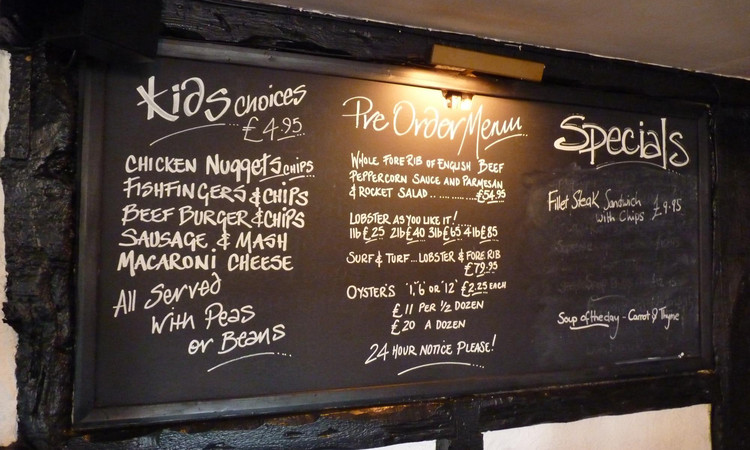 Kids choices
£4.95
CHICKEN NUGGETS CHIPS
FISHFINGERS & CHIPS
BEEF BURGER & CHIPS
SAUSAGE & MASH
MACARONI CHEESE
All Served
With Peas
or Beans
Pre Order Menu
WHOLE FORE RIB OF ENGLISH BEEF
PEPPERCORN SAUCE AND PARMESAN
& ROCKET SALAD .... £54.95
LOBSTER AS YOU LIKE IT!
1lb £25 2lb £40 3lb £65 4lb £85
SURF & TURF... LOBSTER & FORE RIB
£79.95
OYSTER'S '1', '6' OR '12' £2.25 EACH
£11 PER ½ DOZEN
£20 A DOZEN
24 HOUR NOTICE PLEASE!
Specials
Fillet Steak Sandwich
With Chips £9.95
Soup of the day - Carrot & Thyme